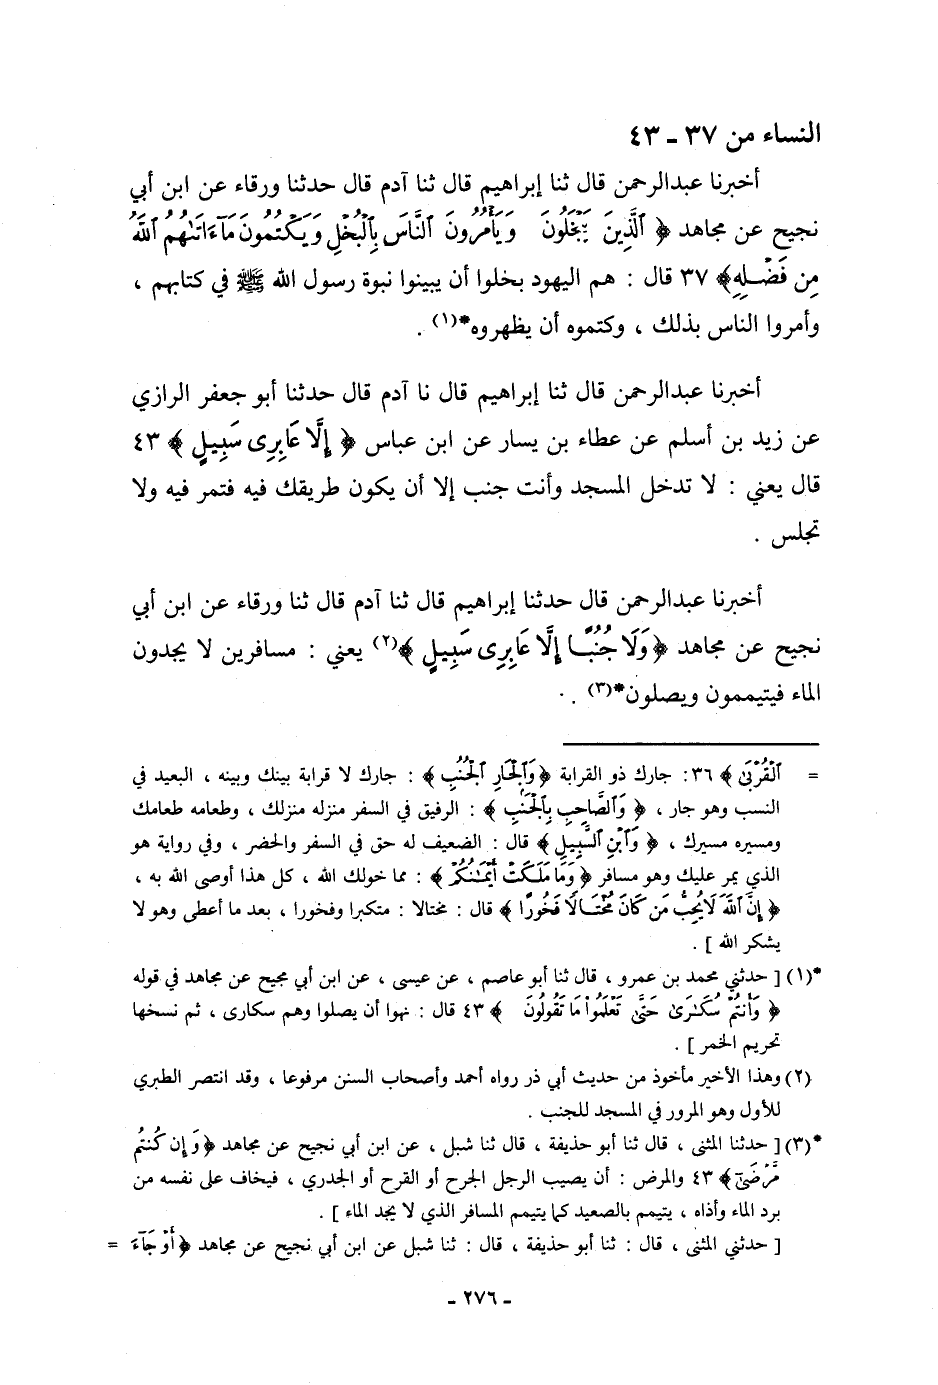 النساء من ٣٧ ـ ٤٣
أخبرنا عبدالرحمن قال ثنا إبراهيم قال ثنا آدم قال حدثنا ورقاء عن ابن أبي
نجيح عن مجاهد ﴿ ٱلَّذِينَ يَبْخَلُونَ وَيَأْمُرُونَ ٱلنَّاسَ بِٱلْبُخْلِ وَيَكْتُمُونَ مَآءَاتَىٰهُمُ ٱللَّهُ
مِن فَضْلِهِ﴾ ٣٧ قال : هم اليهود بخلوا أن يبينوا نبوة رسول الله ﷺ في كتابهم ،
وأمروا الناس بذلك ، وكتموه أن يظهروه*(١) .
أخبرنا عبدالرحمن قال ثنا إبراهيم قال نا آدم قال حدثنا أبو جعفر الرازي
عن زيد بن أسلم عن عطاء بن يسار عن ابن عباس ﴿ إِلَّا عَابِرِى سَبِيلٍ ﴾ ٤٣
قال يعني : لا تدخل المسجد وأنت جنب إلا أن يكون طريقك فيه فتمر فيه ولا
تجلس .
أخبرنا عبدالرحمن قال حدثنا إبراهيم قال ثنا آدم قال ثنا ورقاء عن ابن أبي
نجيح عن مجاهد ﴿وَلَا جُنُبًا إِلَّا عَابِرِى سَبِيلٍ ﴾(٢) يعني : مسافرين لا يجدون
الماء فيتيممون ويصلون*(٣) .
= ٱلْقُرْبَىٰ ﴾ ٣٦: جارك ذو القرابة ﴿وَٱلْجَارِ ٱلْجُنُبِ ﴾ : جارك لا قرابة بينك وبينه ، البعيد في
النسب وهو جار ، ﴿ وَٱلصَّاحِبِ بِٱلْجَنۢبِ ﴾ : الرفيق في السفر منزله منزلك ، وطعامه طعامك
ومسيره مسيرك ، ﴿ وَٱبْنِ ٱلسَّبِيلِ ﴾ قال : الضعيف له حق في السفر والحضر ، وفي رواية هو
الذي يمر عليك وهو مسافر ﴿ وَمَا مَلَكَتْ أَيْمَـٰنُكُمْ ﴾ : مما خولك الله ، كل هذا أوصى الله به ،
﴿ إِنَّ ٱللَّهَ لَا يُحِبُّ مَن كَانَ مُخْتَالًا فَخُورًا ﴾ قال : مختالا : متكبرا وفخورا ، بعد ما أعطى وهو لا
يشكر الله ] .
*(١) [ حدثني محمد بن عمرو ، قال ثنا أبو عاصم ، عن عيسى ، عن ابن أبي مجيح عن مجاهد في قوله
﴿ وَأَنتُمْ سُكَـٰرَىٰ حَتَّىٰ تَعْلَمُوا۟ مَا تَقُولُونَ ﴾ ٤٣ قال : نهوا أن يصلوا وهم سكارى ، ثم نسخها
تحريم الخمر ] .
(٢) وهذا الأخير مأخوذ من حديث أبي ذر رواه أحمد وأصحاب السنن مرفوعا ، وقد انتصر الطبري
للأول وهو المرور في المسجد للجنب .
*(٣) [ حدثنا المثنى ، قال ثنا أبو حذيفة ، قال ثنا شبل ، عن ابن أبي نجيح عن مجاهد ﴿وَإِن كُنتُم
مَّرْضَىٰٓ﴾ ٤٣ والمرض : أن يصيب الرجل الجرح أو القرح أو الجدري ، فيخاف على نفسه من
برد الماء وأذاه ، يتيمم بالصعيد كما يتيمم المسافر الذي لا يجد الماء ] .
[ حدثني المثنى ، قال : ثنا أبو حذيفة ، قال : ثنا شبل عن ابن أبي نجيح عن مجاهد ﴿أَوْ جَآءَ =
ـ ٢٧٦ ـ